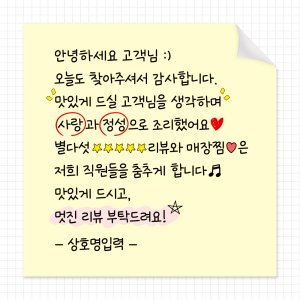 안녕하세요 고객님 :)
오늘도 찾아주셔서 감사합니다.
맛있게 드실 고객님을 생각하며
사랑과 정성으로 조리했어요♥
별다섯 ★★★★★리뷰와 매장찜♥은
저희 직원들을 춤추게 합니다♫
맛있게 드시고,
멋진 리뷰 부탁드려요!
- 상호명입력 -